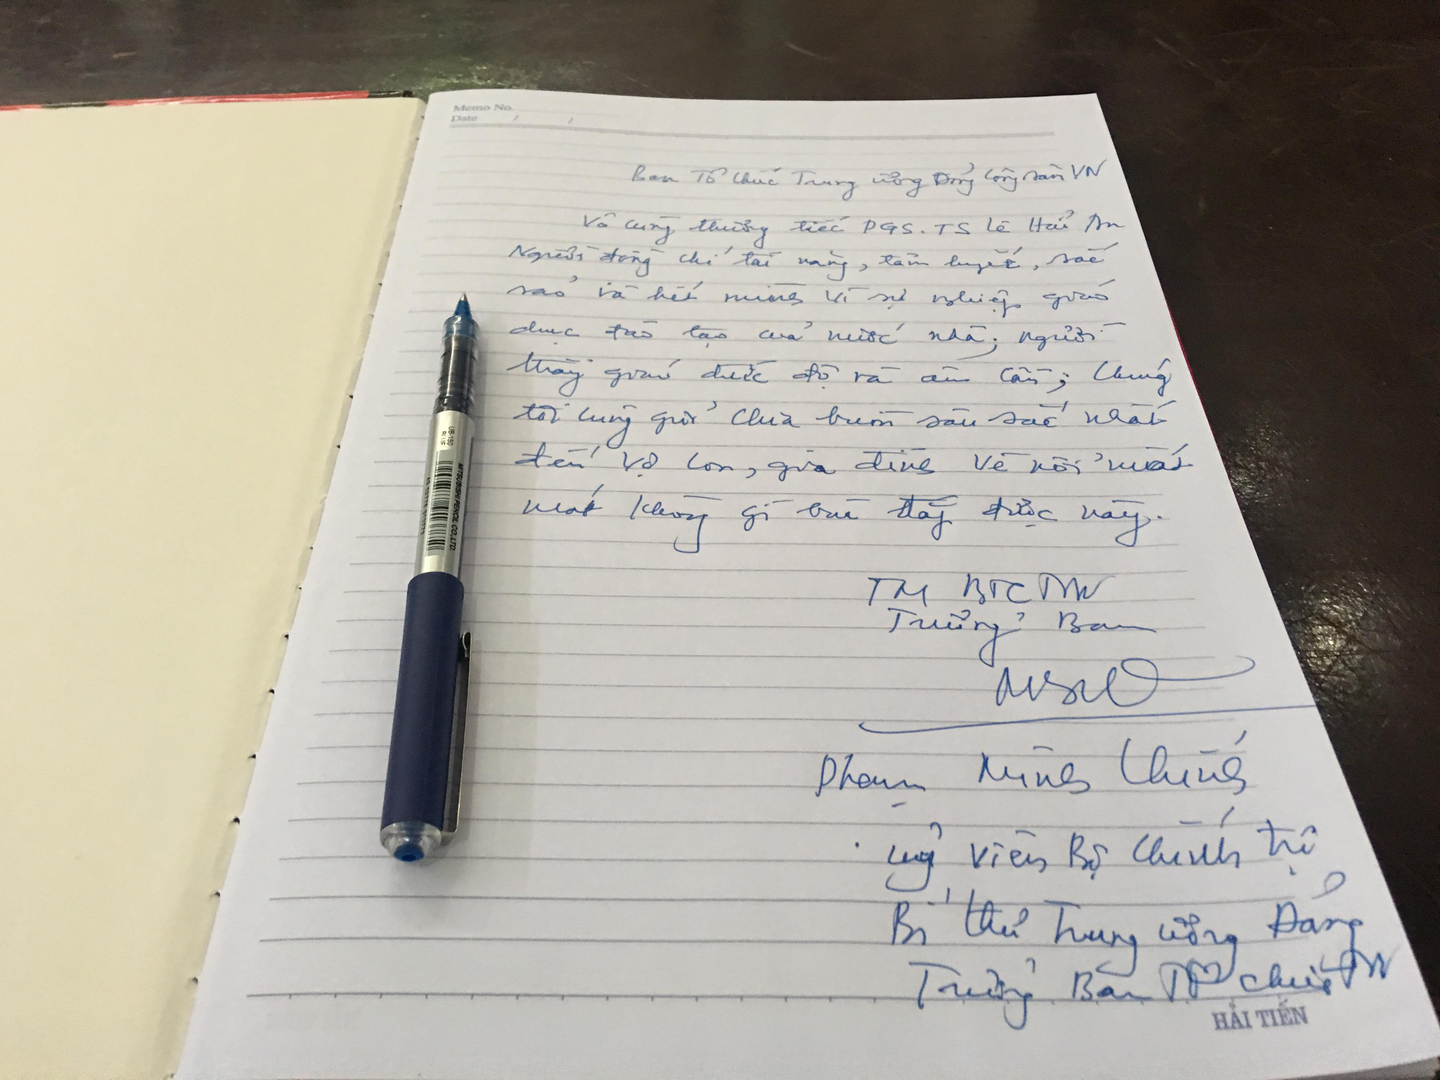 Memo No.
Date / /
Ban Tổ chức Trung ương Đảng Cộng sản VN
Vô cùng thương tiếc PGS.TS Lê Hải An
Người đồng chí tài năng, tâm huyết, sắc
sảo và hết mình vì sự nghiệp giáo
dục đào tạo của nước nhà; người
thầy giáo đức độ và ân cần; Chúng
tôi cùng gửi chia buồn sâu sắc nhất
đến vợ con, gia đình về nỗi mất
mát không gì bù đắp được này.
TM BTCTW
Trưởng Ban
Phạm Minh Chính
Uỷ viên Bộ Chính trị
Bí thư Trung ương Đảng
Trưởng Ban Tổ chức TW
HẢI TIẾN
UB-150
MITSUBISHI PENCIL CO.,LTD.